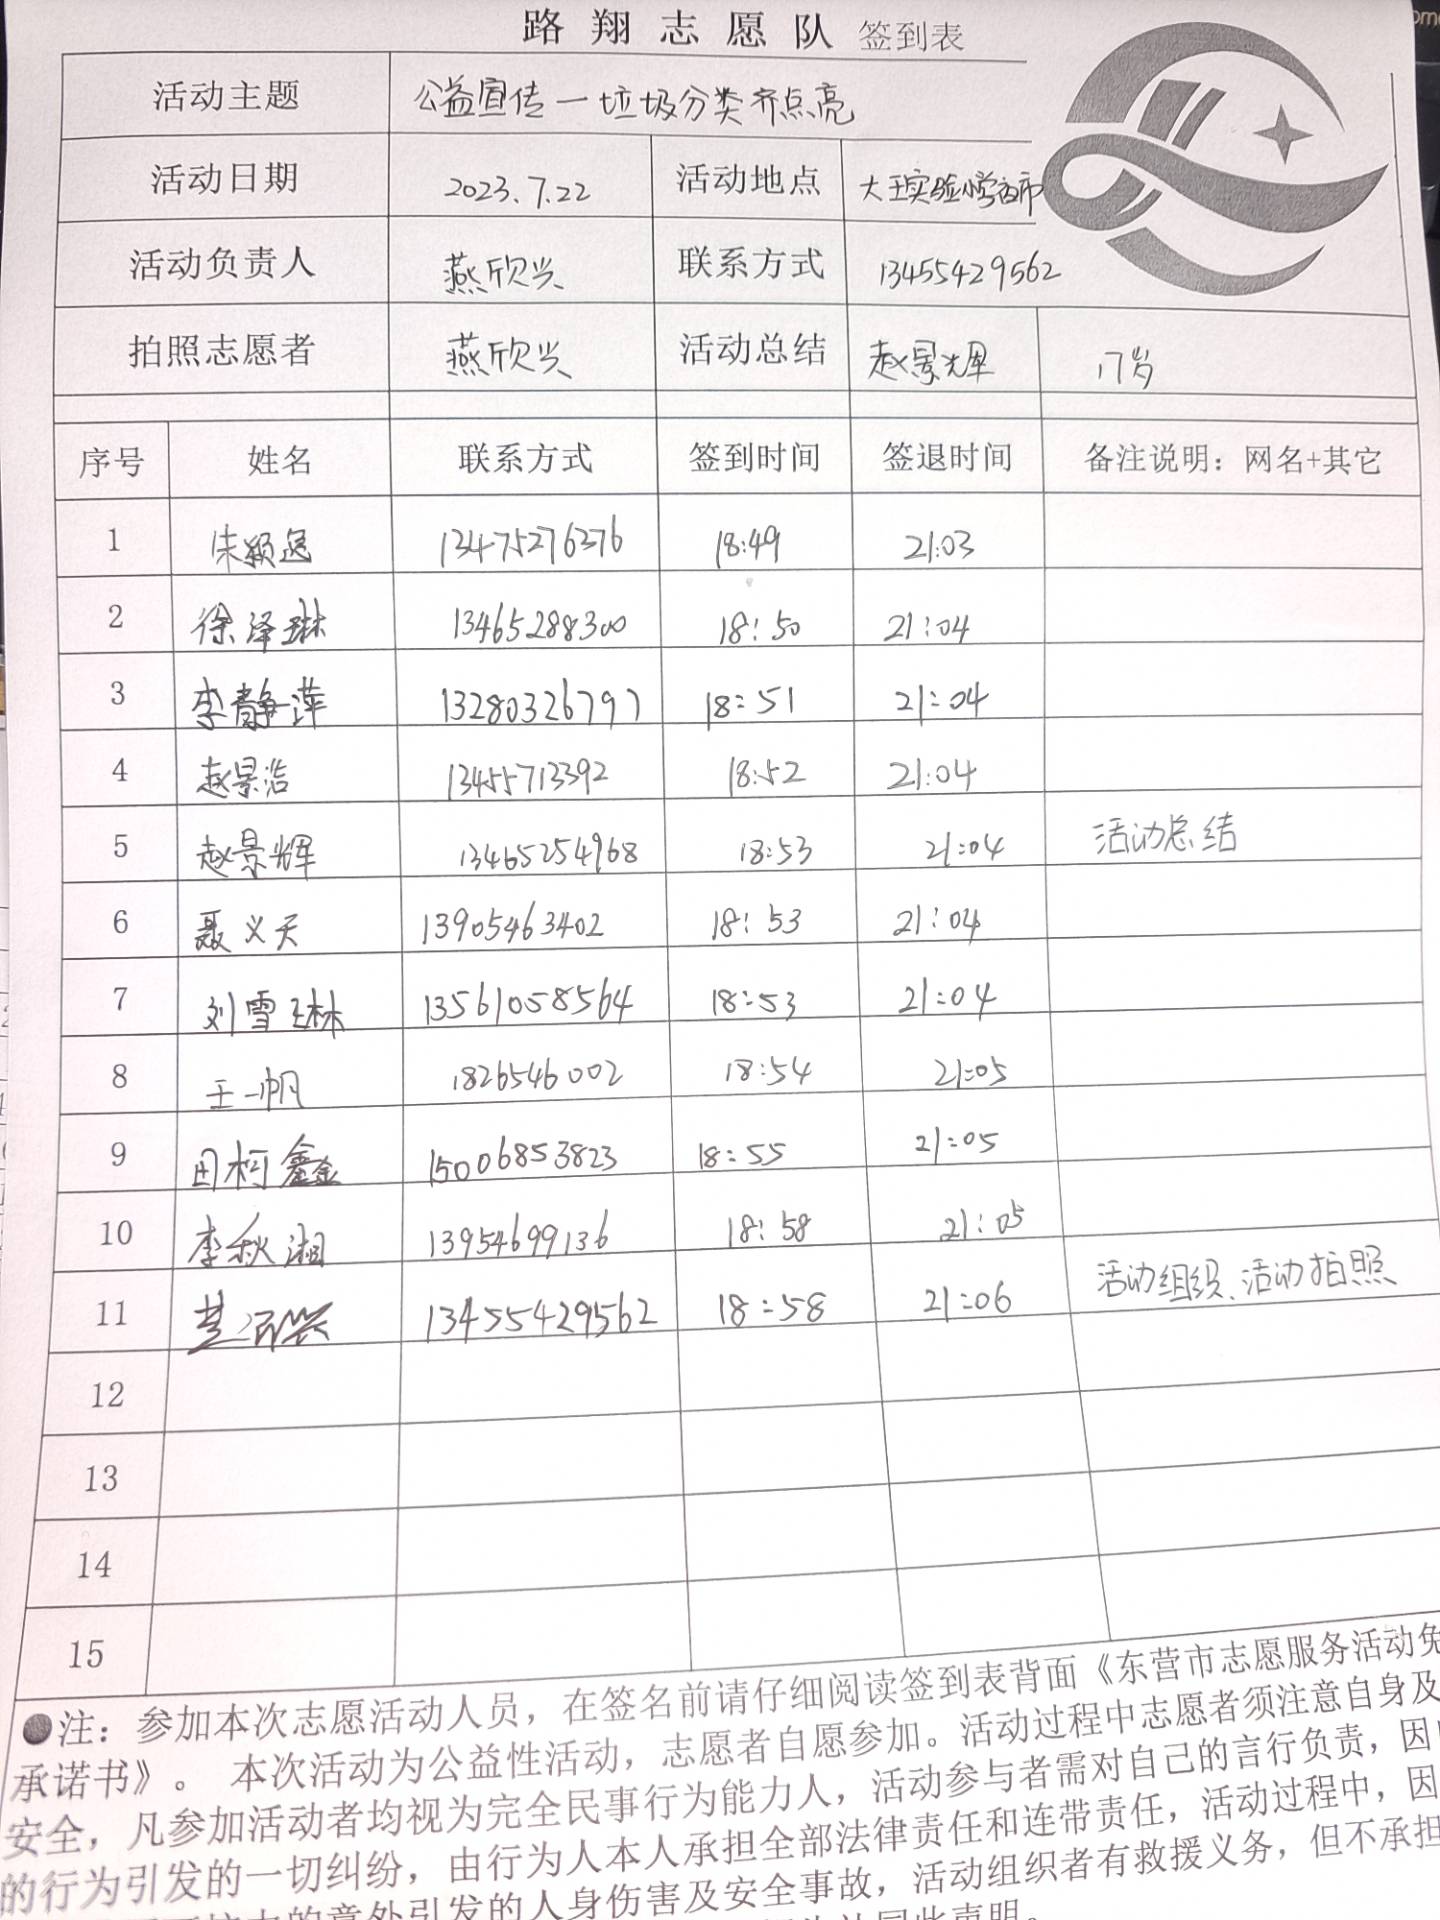 路翔志愿队 签到表
活动主题 公益宣传一垃圾分类齐点亮
活动日期 2023.7.22 活动地点 大王实验小学夜市
活动负责人 燕欣兴 联系方式 13455429562
拍照志愿者 燕欣兴 活动总结 赵景辉 17岁
序号 姓名 联系方式 签到时间 签退时间 备注说明：网名+其它
1 13475276376 18:49 21:03
2 徐泽琳 13465288300 18:50 21:04
3 李静萍 13280326797 18:51 21:04
4 赵景浩 13455713392 18:52 21:04
5 赵景辉 13465254968 18:53 21:04 活动总结
6 聂义天 13905463402 18:53 21:04
7 刘雪琳 13561058564 18:53 21:04
8 王一帆 1826546002 18:54 21:05
9 田柯鑫 15006853823 18:55 21:05
10 李秋湘 13954699136 18:58 21:05
11 13455429562 18:58 21:06 活动组织、活动拍照
12
13
14
15
●注：参加本次志愿活动人员，在签名前请仔细阅读签到表背面《东营市志愿服务活动免
承诺书》。 本次活动为公益性活动，志愿者自愿参加。活动过程中志愿者须注意自身及
安全，凡参加活动者均视为完全民事行为能力人，活动参与者需对自己的言行负责，因
的行为引发的一切纠纷，由行为人本人承担全部法律责任和连带责任，活动过程中，因
的意外引发的人身伤害及安全事故，活动组织者有救援义务，但不承担
同此声明。